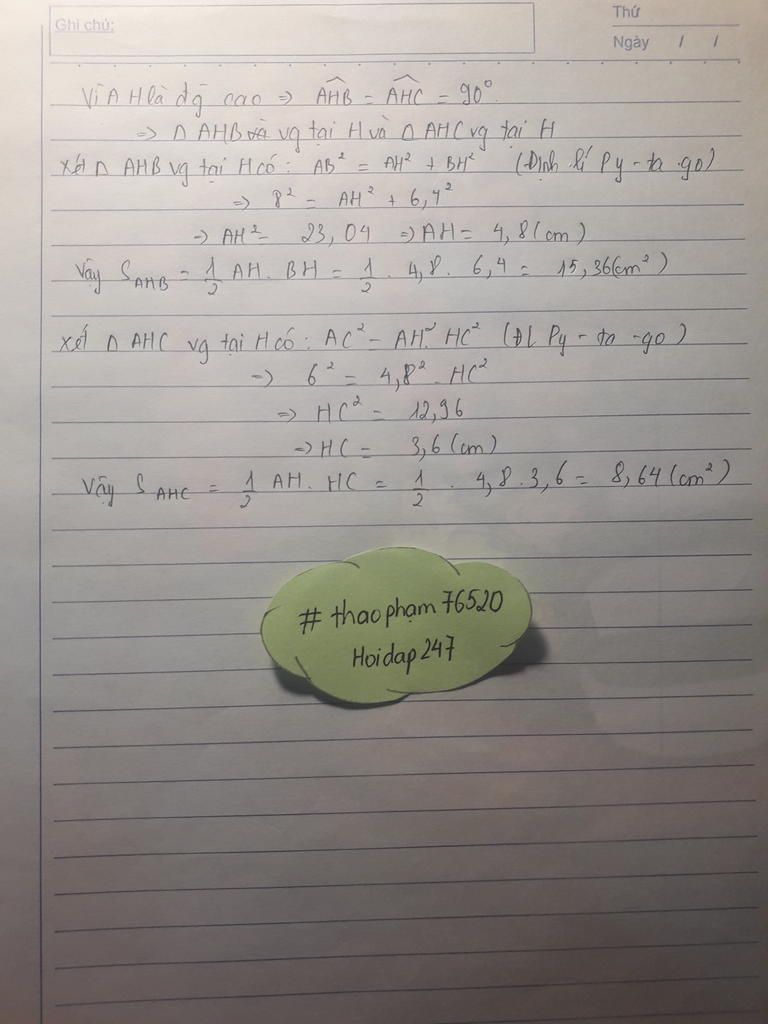 Ghi chú:
Thứ
Ngày / /
Vì AH là đg cao => AHB = AHC = 90°
=> Δ AHB và vg tại H và Δ AHC vg tại H
Xét Δ AHB vg tại H có: AB² = AH² + BH² (Định lí Py-ta-go)
=> 8² = AH² + 6,4²
=> AH² = 23,04 => AH = 4,8 (cm)
Vậy S AHB = 1/2 AH. BH = 1/2 . 4,8 . 6,4 = 15,36(cm²)
Xét Δ AHC vg tại H có: AC² = AH². HC² (ĐL Py-ta-go)
=> 6² = 4,8² . HC²
=> HC² = 12,96
=> HC = 3,6 (cm)
Vậy S AHC = 1/2 AH. HC = 1/2 . 4,8 . 3,6 = 8,64 (cm²)
# thaophạm76520
Hoidap247